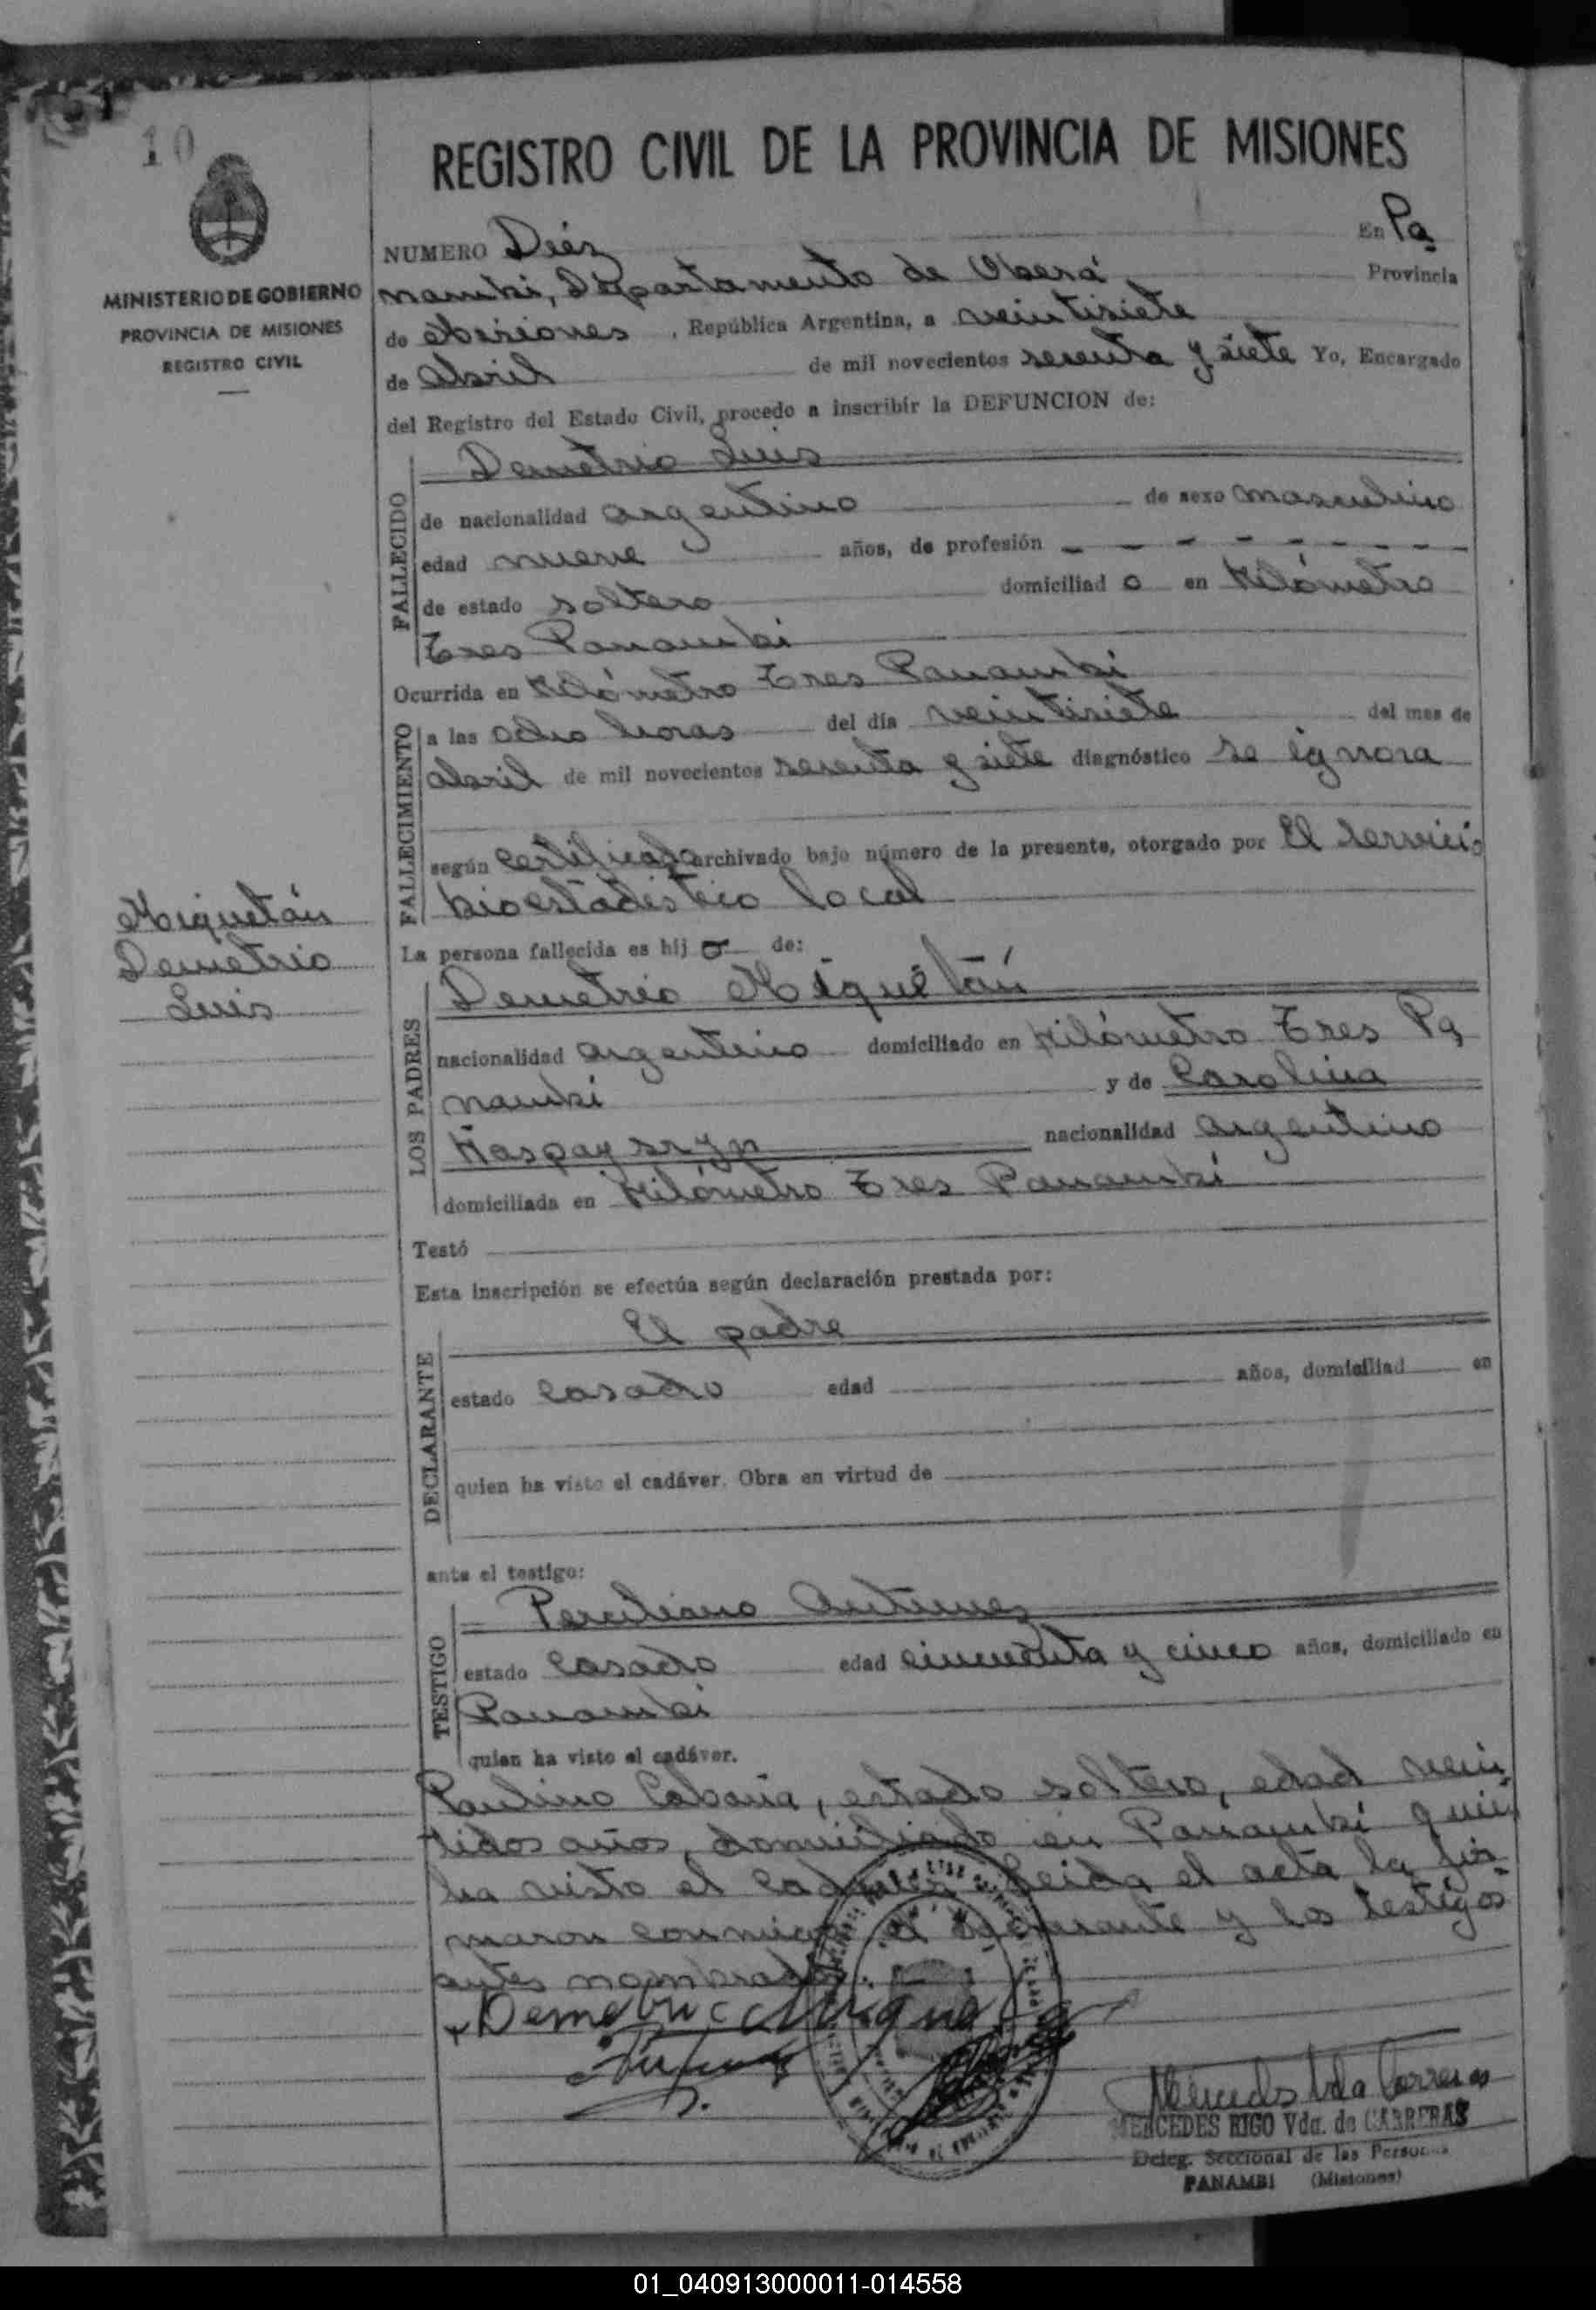 10
REGISTRO CIVIL DE LA PROVINCIA DE MISIONES
MINISTERIO DE GOBIERNO
PROVINCIA DE MISIONES
REGISTRO CIVIL
NUMERO Diéz En Pa
nambi, Departamento de Oberá Provincia
de Misiones , República Argentina, a veintisiete
de Abril de mil novecientos sesenta y siete Yo, Encargado
del Registro del Estado Civil, procedo a inscribir la DEFUNCION de:
Demetrio Luis
FALLECIDO
de nacionalidad argentino de sexo masculino
edad nueve años, de profesión - - - - - - - -
de estado soltero domiciliad o en Kilómetro
Tres Panambi
Ocurrida en Kilómetro Tres Panambi
FALLECIMIENTO
a las ocho horas del día veintisiete del mes de
abril de mil novecientos sesenta y siete diagnóstico se ignora
según certificado archivado bajo número de la presente, otorgado por El servicio
bioestadistico local
Miquetán
Demetrio
Luis
La persona fallecida es hij o de:
Demetrio Miquetán
LOS PADRES
nacionalidad argentino domiciliado en Kilómetro Tres Pa
nambi y de Carolina
nacionalidad argentino
domiciliada en Kilómetro Tres Panambi
Testó
Esta inscripción se efectúa según declaración prestada por:
El padre
DECLARANTE
estado casado edad años, domiciliad en
quien ha visto el cadáver. Obra en virtud de
ante el testigo:
Perciliano Antunez
TESTIGO
estado casado edad cincuenta y cinco años, domiciliado en
Panambi
quien ha visto el cadáver.
Paulino Cabaña, estado soltero, edad vein
tidos años, domiciliado en Panambi quien
ha visto el cadáver. Leida el acta la fir-
maron conmigo el declarante y los testigos
antes nombrados.
Demetrio Miqueta
Mercedes Vda Carreras
MERCEDES RIGO Vda. de CARRERAS
Deleg. Seccional de las Personas
PANAMBI (Misiones)
01_040913000011-014558